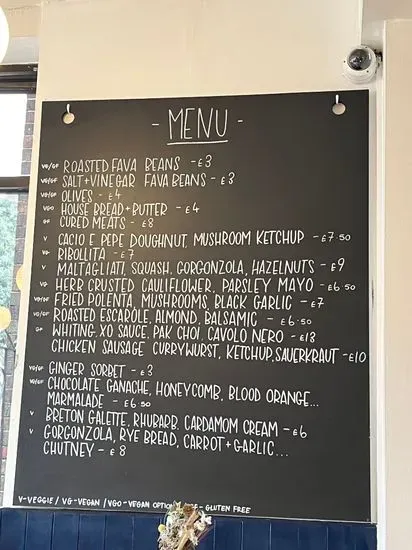 - MENU -
VG/GF ROASTED FAVA BEANS - £3
VG/GF SALT+VINEGAR FAVA BEANS - £3
VG/GF OLIVES - £4
VGO HOUSE BREAD + BUTTER - £4
GF CURED MEATS - £8
V CACIO E PEPE DOUGHNUT, MUSHROOM KETCHUP - £7.50
VG RIBOLLITA - £7
V MALTAGLIATI, SQUASH, GORGONZOLA, HAZELNUTS - £9
VG HERB CRUSTED CAULIFLOWER, PARSLEY MAYO - £6.50
VG/GF FRIED POLENTA, MUSHROOMS, BLACK GARLIC - £7
VG/GF ROASTED ESCAROLE, ALMOND, BALSAMIC - £6.50
GF WHITING, XO SAUCE, PAK CHOI, CAVOLO NERO - £13
CHICKEN SAUSAGE CURRYWURST, KETCHUP, SAUERKRAUT - £10
VG/GF GINGER SORBET - £3
VG/GF CHOCOLATE GANACHE, HONEYCOMB, BLOOD ORANGE...
MARMALADE - £6.50
V BRETON GALETTE, RHUBARB, CARDAMOM CREAM - £6
V GORGONZOLA, RYE BREAD, CARROT + GARLIC...
CHUTNEY - £8
V-VEGGIE / VG-VEGAN / VGO-VEGAN OPTION - GLUTEN FREE